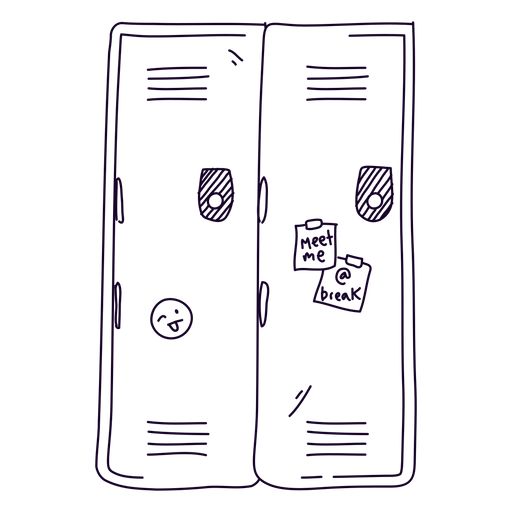 Meet
me
@
break